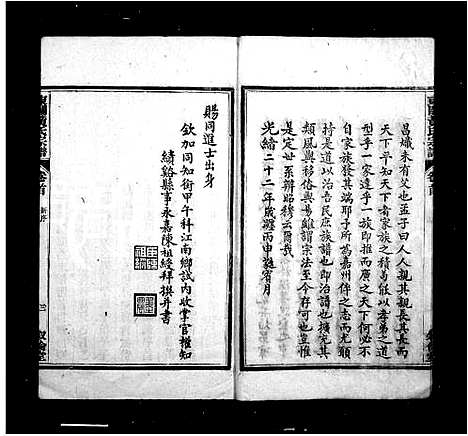 昌熾未有父也孟子曰人人親其親長其長而
天下平知天下者家族之積髙能以孝弟之道
型乎一家達乎一族即推而廣之天下何必不
自家族為權輿耶子所為嘉州倅之志而尤顧
持是道以治吾民庶族譜也即治譜也擴充其
類風與移俗與易維謂宗法至今存可也豈惟
是定世系辨昭穆云爾哉
光緒二十二年歲灑丙申蕤賓月
賜同進士出身
欽加同知銜甲午科江南鄉試內收掌官權知
績谿縣事永嘉陳祖綬拜撰并書
卷首
新序